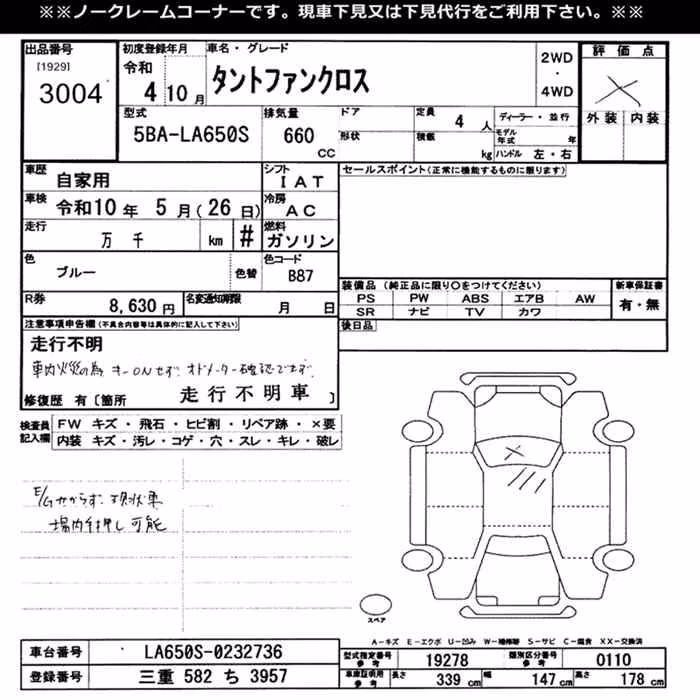 ※※ノークレームコーナーです。現車下見又は下見代行をご利用下さい。※※
出品番号
[1929]
3004
初度登録年月
令和
4 10 月
車名・グレード
タントファンクロス
2WD
・
4WD
評価点
×
外装 内装
型式
5BA-LA650S
排気量
660
CC
ドア
形状
定員
4 人
積載
kg
ディーラー・並行
モデル年式 年
ハンドル 左・右
車歴
自家用
シフト
IAT
車検
令和10年 5月(26日)
冷房
AC
走行
万 千 km #
燃料
ガソリン
色
ブルー
色替
色コード
B87
R券
8,630円
名変通知期限
月 日
セールスポイント(正常に機能するものに限ります)
装備品(純正品に限り〇をつけてください)
PS PW ABS エアB AW
SR ナビ TV カワ
新車保証書
有・無
後日品
注意事項申告欄(不具合内容等は具体的に記入して下さい)
走行不明
車内火災の為、キーONせず、オドメーター確認できず。
修復歴 有〔箇所 走行不明車 〕
検査員記入欄
FW キズ・飛石・ヒビ割・リペア跡・×要
内装 キズ・汚レ・コゲ・穴・スレ・キレ・破レ
E/Gかからず、現状車
場内手押し可能
×
スペア
A-キズ E-エクボ U-凹み W-補修跡 S-サビ C-腐食 XX-交換済
車台番号
LA650S-0232736
登録番号
三重 582 ち 3957
型式指定番号
参考
19278
類別区分番号
参考
0110
車庫証明用
参考
長さ 339 cm
幅 147 cm
高さ 178 cm